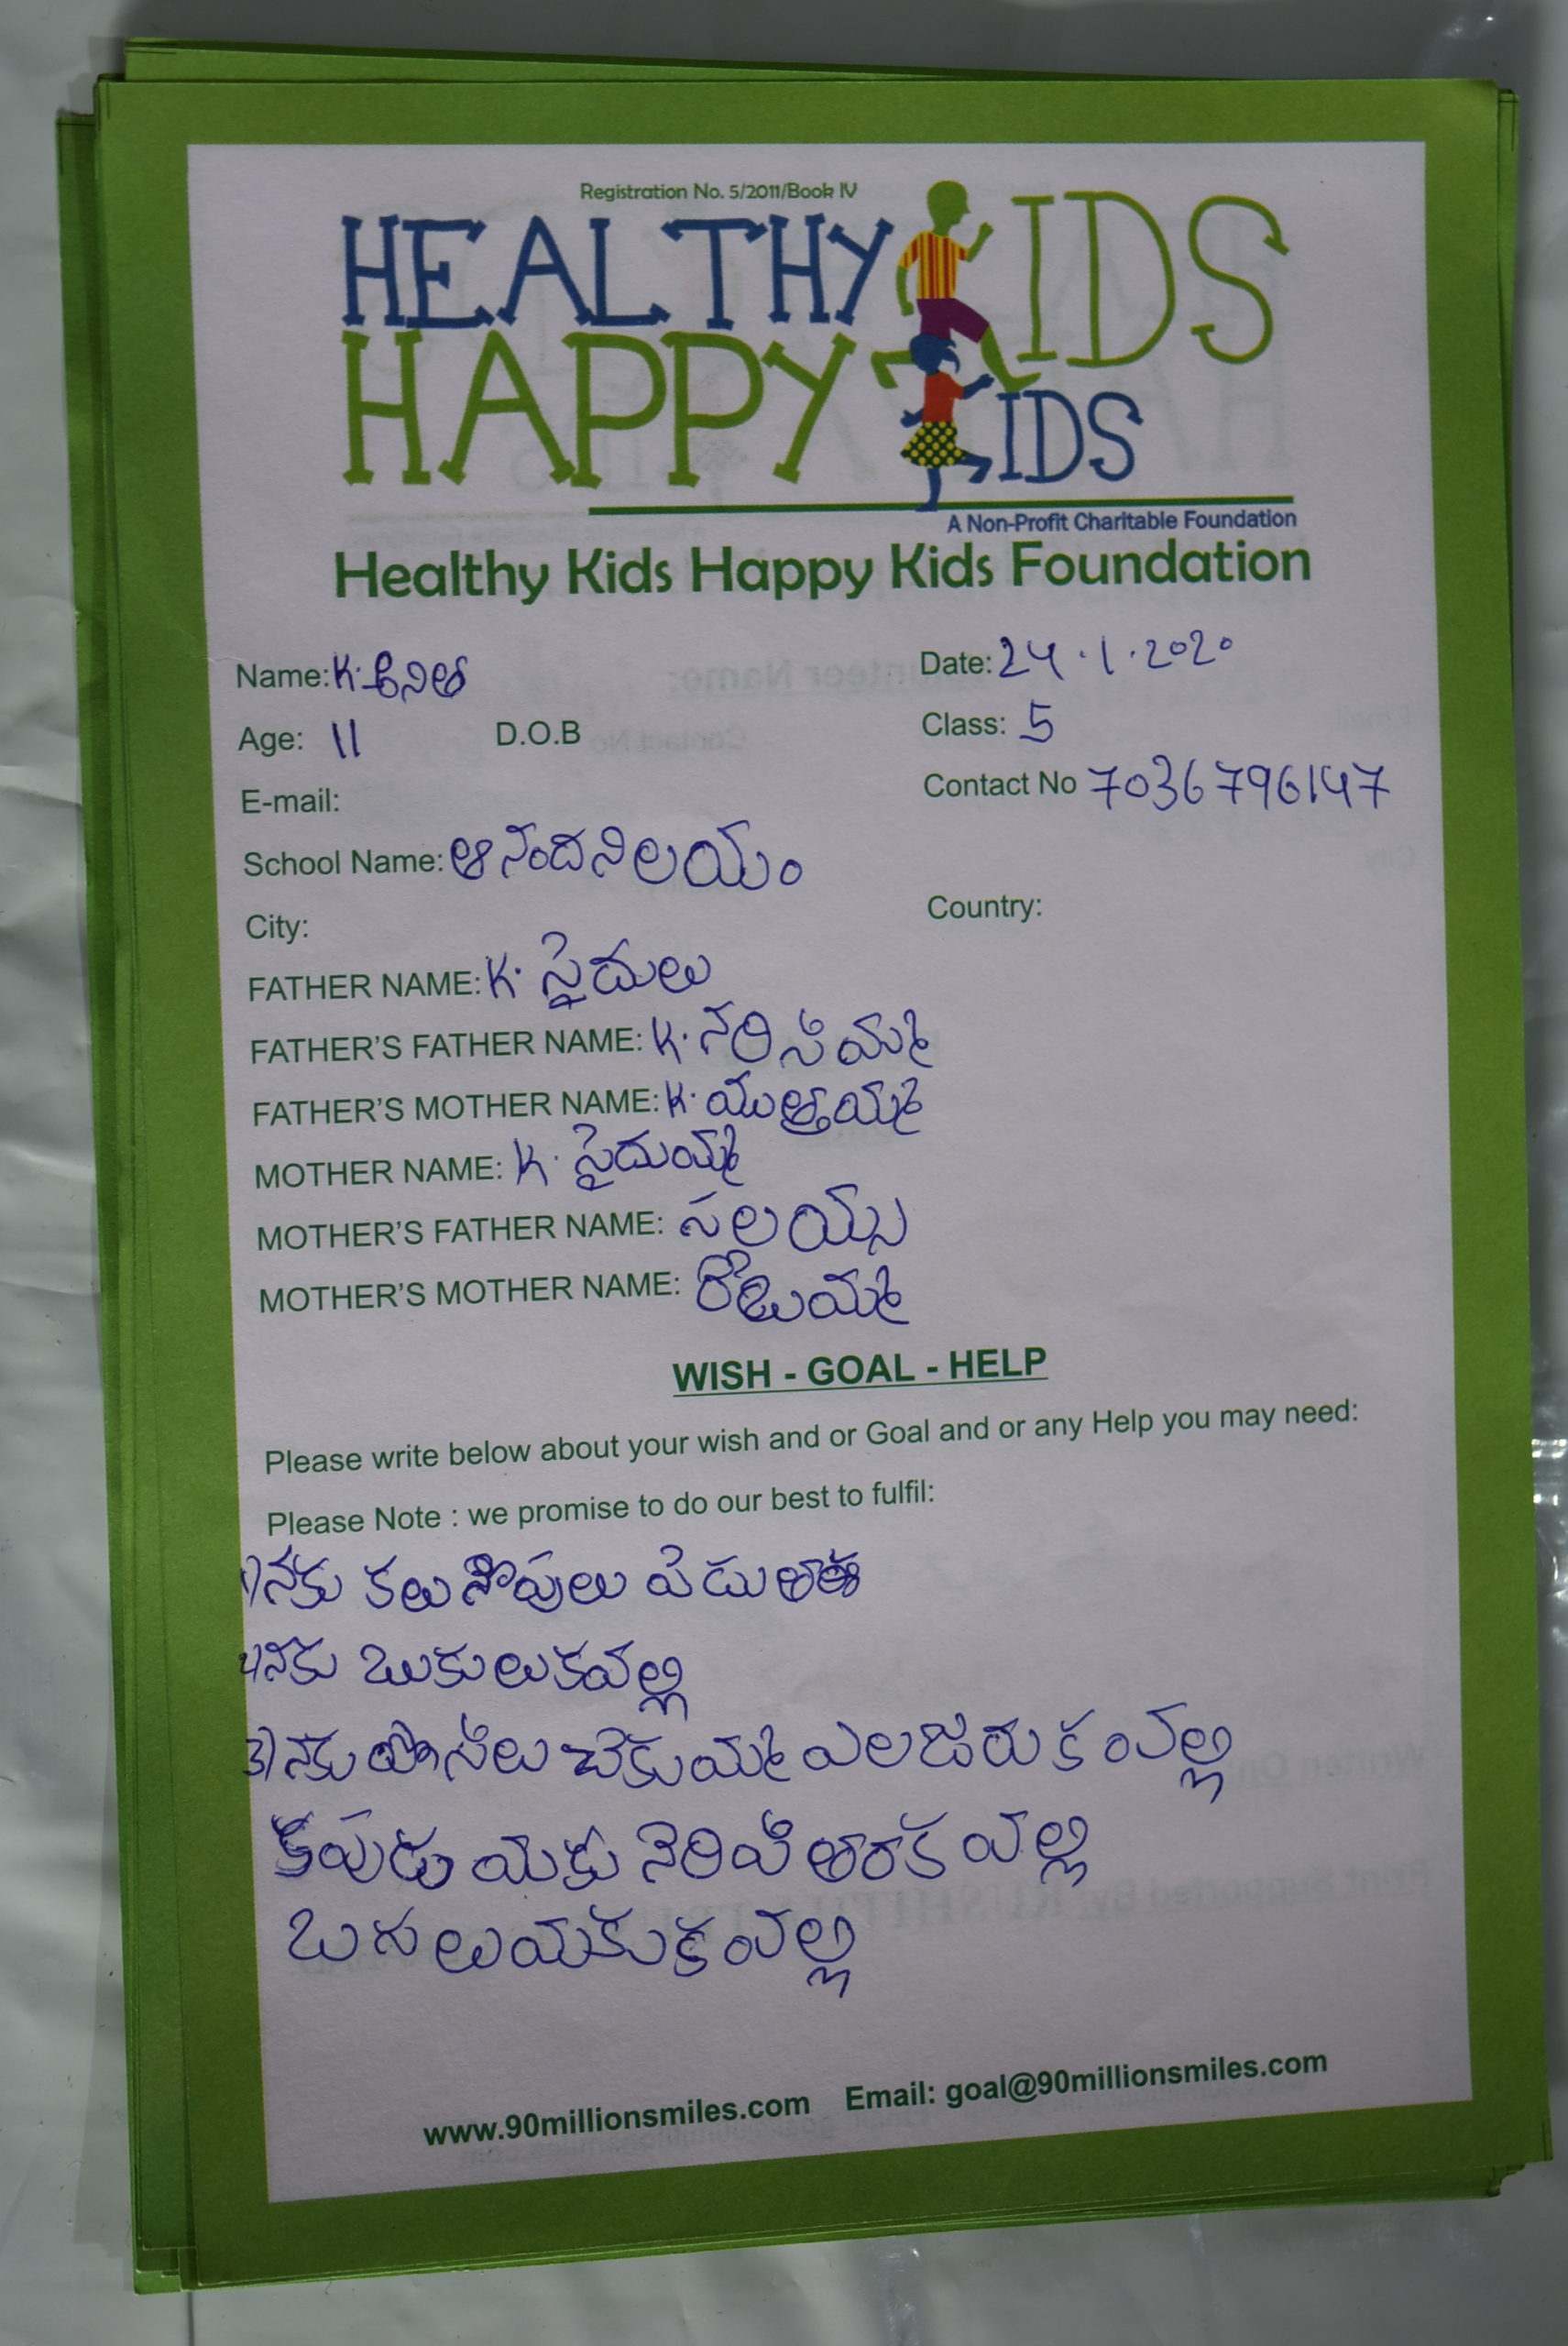 Registration No. 5/2011/Book IV
HEALTHY KIDS
HAPPY KIDS
A Non-Profit Charitable Foundation
Healthy Kids Happy Kids Foundation
Name: K. అనిత Date: 24.1.2020
Age: 11 D.O.B Class: 5
E-mail: Contact No 7036796147
School Name: ఆనందనిలయం
City: Country:
FATHER NAME: K. సైదులు
FATHER'S FATHER NAME: K. నరిసమ్మ
FATHER'S MOTHER NAME: K. ముత్తమ్మ
MOTHER NAME: K. సైదుమ్మ
MOTHER'S FATHER NAME: సలయ్య
MOTHER'S MOTHER NAME:
WISH - GOAL - HELP
Please write below about your wish and or Goal and or any Help you may need:
Please Note : we promise to do our best to fulfil:
1) నకు కలు
నకు బుకులు కవల్లి
3) నకు
కవల్లి
కవల్లి
www.90millionsmiles.com Email: goal@90millionsmiles.com